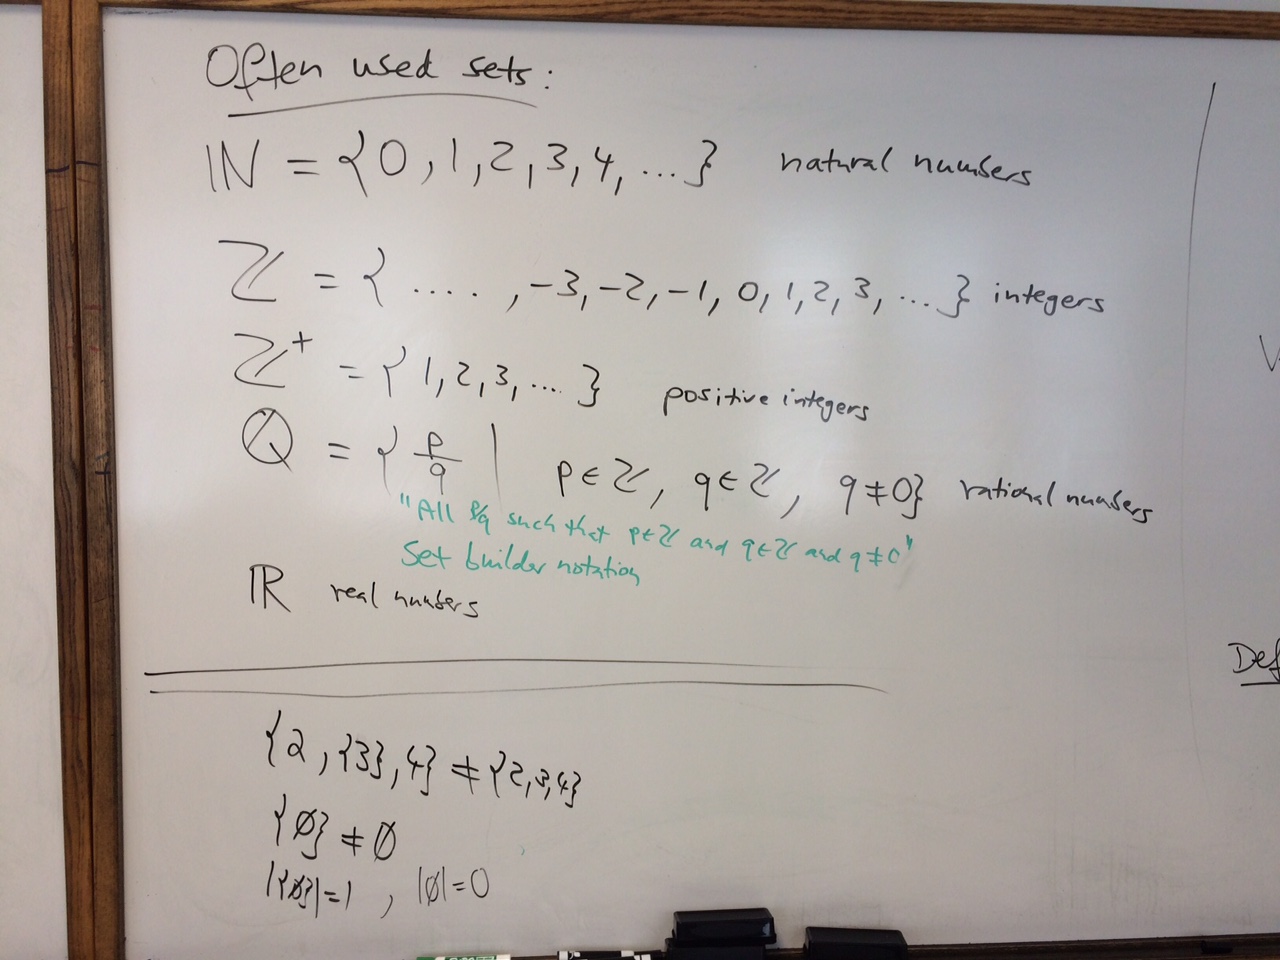 Often used sets:
ℕ = {0, 1, 2, 3, 4, ...} natural numbers
ℤ = {...., -3, -2, -1, 0, 1, 2, 3, ...} integers
ℤ⁺ = {1, 2, 3, ....} positive integers
ℚ = {p/q | p∈ℤ, q∈ℤ, q≠0} rational numbers
"All p/q such that p∈ℤ and q∈ℤ and q≠0"
Set builder notation
ℝ real numbers
{2, {3}, 4} ≠ {2,3,4}
{∅} ≠ ∅
|{∅}|=1 , |∅|=0
Def